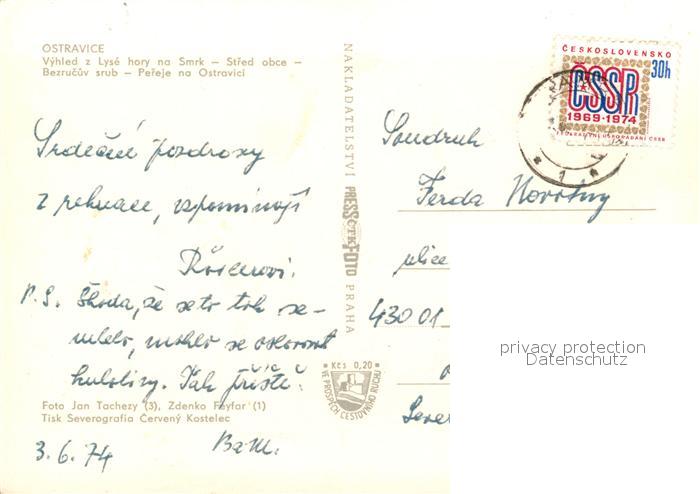 OSTRAVICE
Výhled z Lysé hory na Smrk — Střed obce —
Bezručův srub — Peřeje na Ostravici
Srdečné pozdravy
z rekreace, vzpomínají
P.S. Škoda, že se to tak ne-
Tak příště!
Foto Jan Tachezy (3), Zdenko Feyfar (1)
Tisk Severografia Červený Kostelec
3.6.74
NAKLADATELSTVÍ PRESSFOTO PRAHA
ČTK
Kčs 0,20
VE PROSPĚCH CESTOVNÍHO RUCHU
ČESKOSLOVENSKO
30h
ČSSR
1969-1974
FEDERATIVNÍ USPOŘÁDÁNÍ ČSSR
1
Soudruh
Ferda Novotny
ulice
430 01
privacy protection
Datenschutz